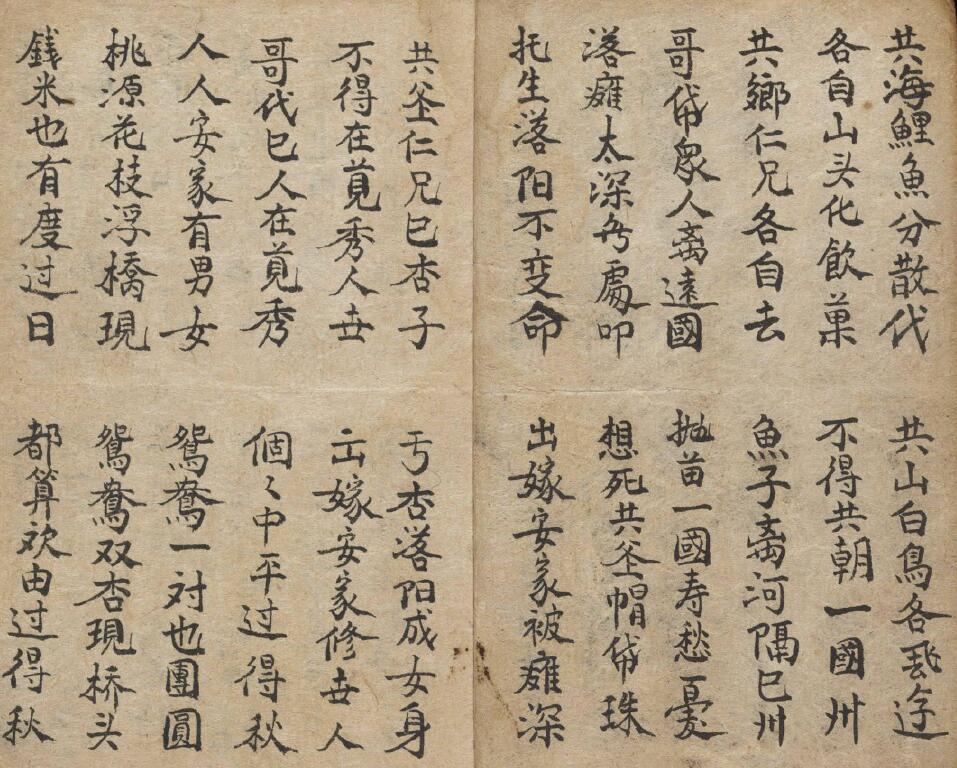 共海鯉魚分散代
共山白鳥各飛迬
各自山头化飲菓
不得共朝一國州
共鄉仁兄各自去
魚子离河隔巳州
哥代眾人离遠國
抛苗一國寿愁憂
落难太深冇處叩
想死共釜帽代珠
托生落阳不变命
出嫁安家被难深
共釜仁兄巳杏子
亏杏落阳成女身
不得在萈秀人世
亡嫁安家修世人
哥代巳人在萈秀
個々中平过得秋
人人安家有男女
鴛鴦一对也團圓
桃源花枝浮橋現
鴛鴦双杏現桥头
銭米也有度过日
都算欢由过得秋